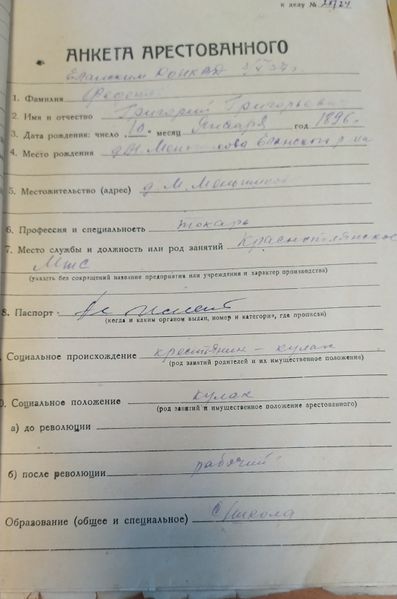 к делу №
АНКЕТА АРЕСТОВАННОГО
1. Фамилия
2. Имя и отчество Григорий Григорьевич
3. Дата рождения: число 10. месяц Января год 1896г
4. Место рождения
5. Местожительство (адрес) д. М.
6. Профессия и специальность токарь
7. Место службы и должность или род занятий Краснополянское
МТС
(указать без сокращений название предприятия или учреждения и характер производства)
8. Паспорт. Не имеет
(когда и каким органом выдан, номер и категория, где прописан)
Социальное происхождение крестьянин - кулак
(род занятий родителей и их имущественное положение)
0. Социальное положение кулак
(род занятий и имущественное положение арестованного)
а) до революции
б) после революции рабочий
Образование (общее и специальное) с/школа